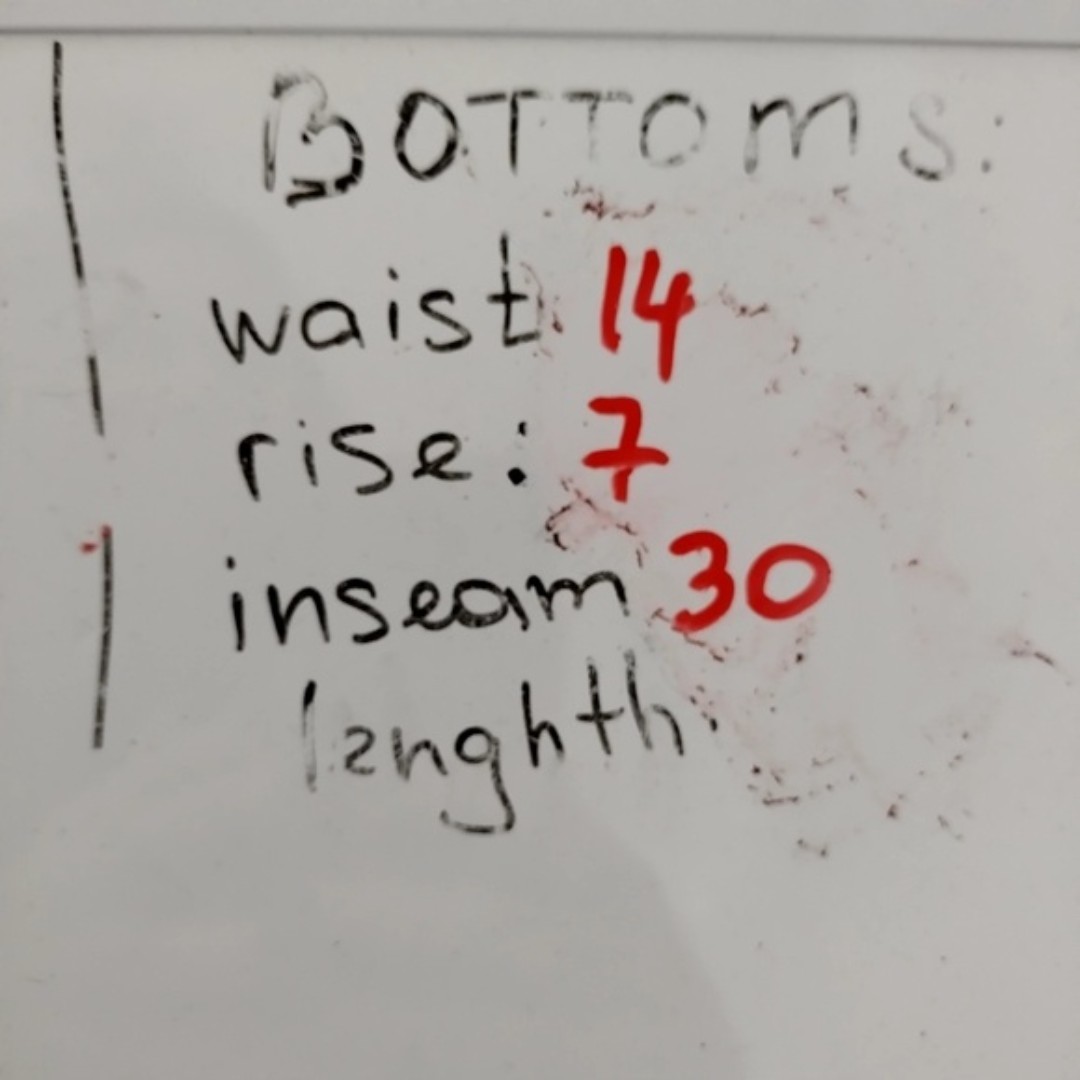 BOTTOMS:
waist: 14
rise: 7
inseam 30
lenghth.